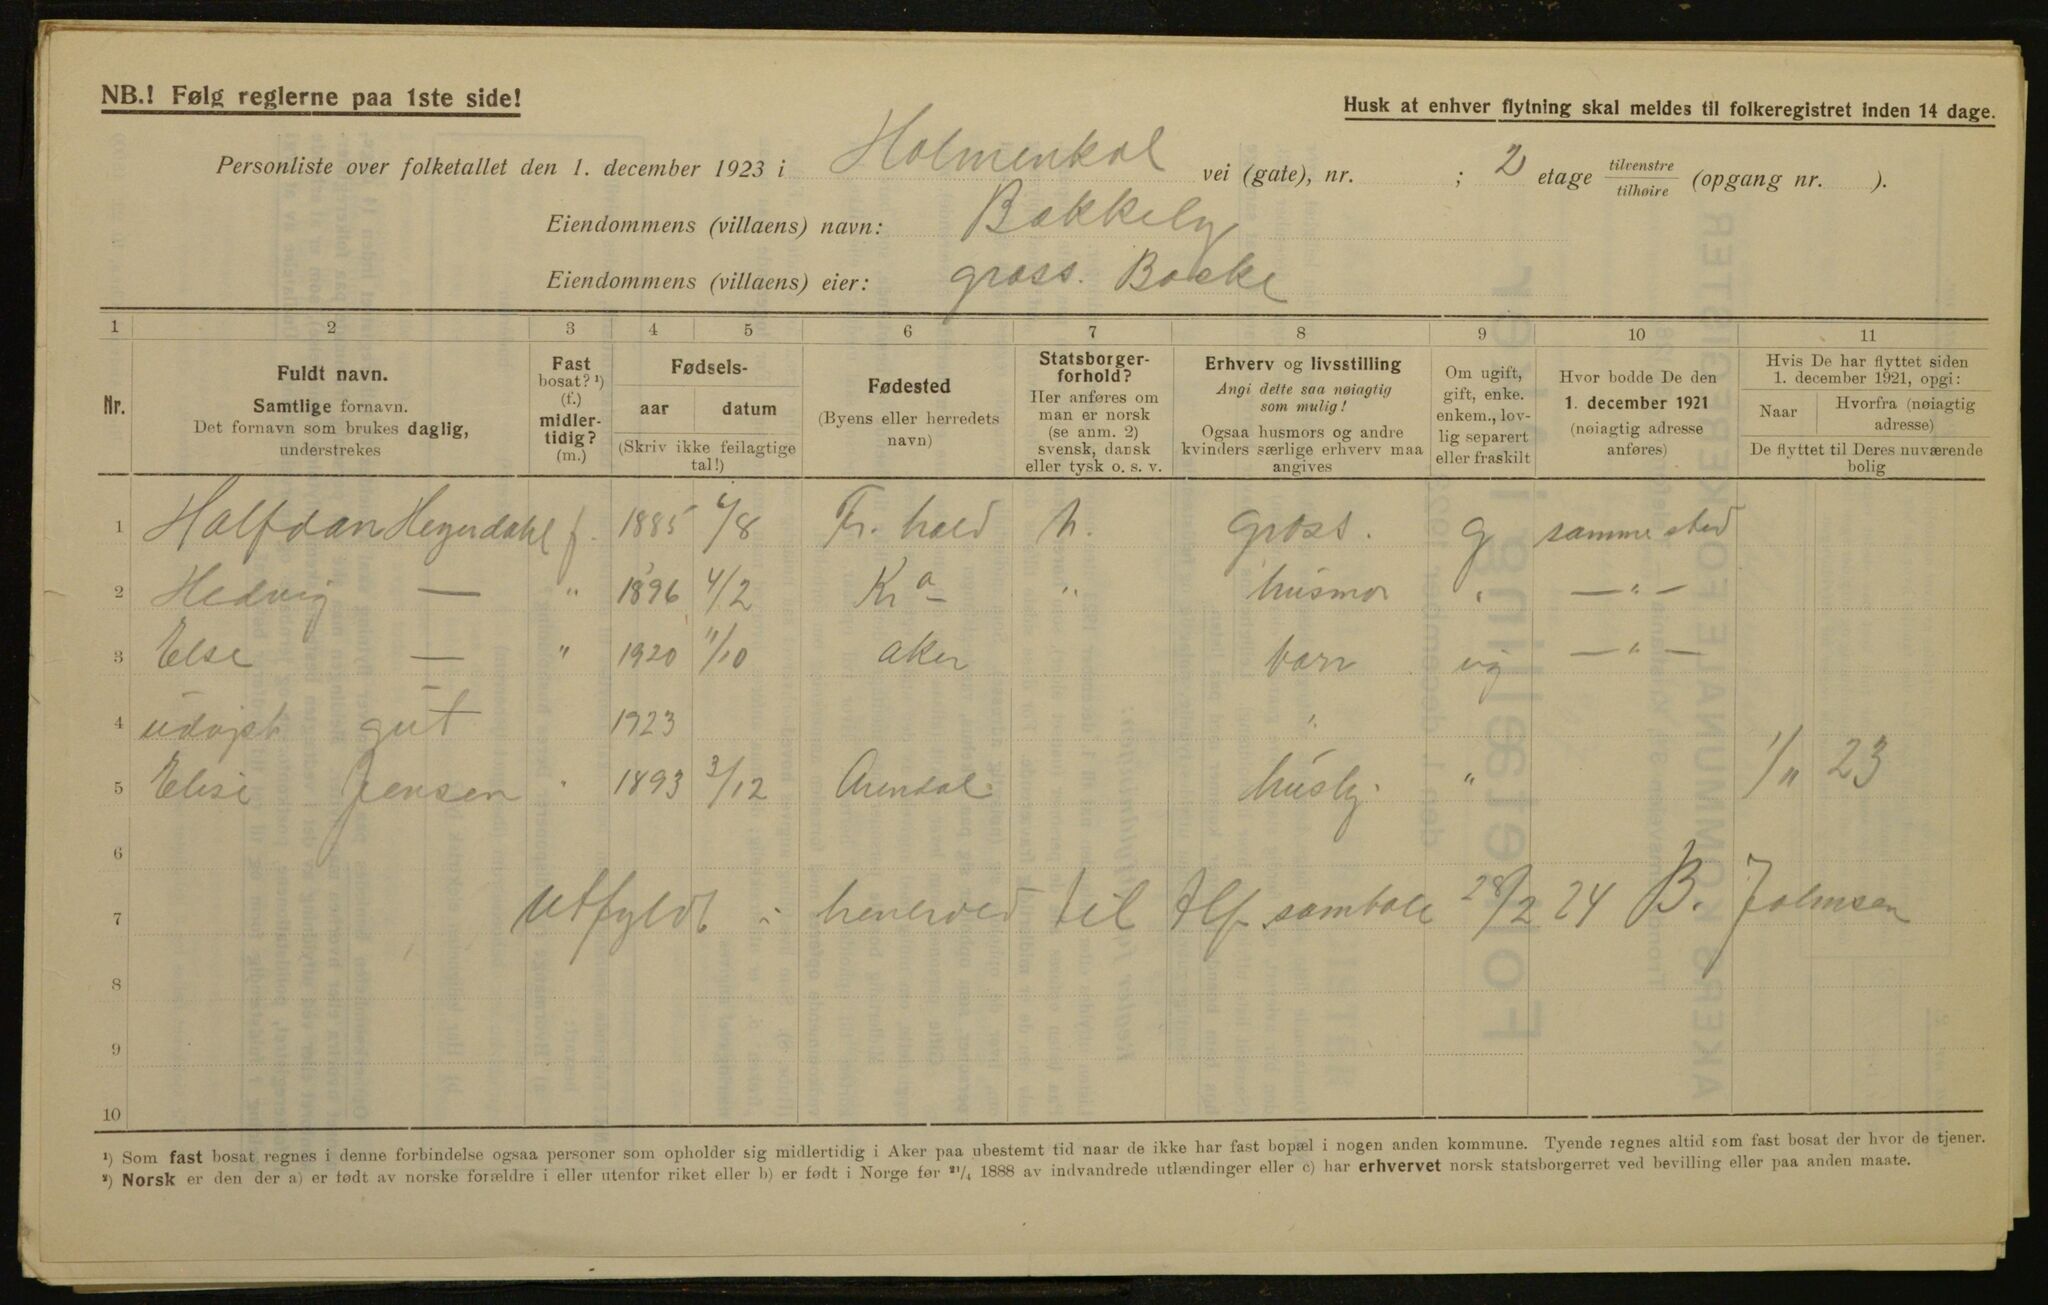 NB.! Følg reglerne paa 1ste side!
Husk at enhver flytning skal meldes til folkeregistret inden 14 dage.
Personliste over folketallet den 1. december 1923 i Holmenkol vei (gate), nr. ; 2 etage tilvenstre tilhøire (opgang nr. ).
Eiendommens (villaens) navn: Bakkely
Eiendommens (villaens) eier: gross. Backe
1 2 3 4 5 6 7 8 9 10 11
Nr.
Fuldt navn.
Samtlige fornavn.
Det fornavn som brukes daglig,
understrekes
Fast
bosat? ¹)
(f.)
midler-
tidig?
(m.)
Fødsels-
aar datum
(Skriv ikke feilagtige
tal!)
Fødested
(Byens eller herredets
navn)
Statsborger-
forhold?
Her anføres om
man er norsk
(se anm. 2)
svensk, dansk
eller tysk o. s. v.
Erhverv og livsstilling
Angi dette saa nøiagtig
som mulig!
Ogsaa husmors og andre
kvinders særlige erhverv maa
angives
Om ugift,
gift, enke.
enkem., lov-
lig separert
eller fraskilt
Hvor bodde De den
1. december 1921
(nøiagtig adresse
anføres)
Hvis De har flyttet siden
1. december 1921, opgi:
Naar
Hvorfra (nøiagtig
adresse)
De flyttet til Deres nuværende
bolig
1 Halfdan Heyerdahl f. 1885 6/8 Fr. hald n. Gross. g samme sted
2 Hedvig — " 1896 4/2 Kr a " husmor " — " —
3 Else — " 1920 11/10 Aker barn ug — " —
4 udøpt gut 1923 "
5 Elise Jensen " 1893 3/12 Arendal husbj. " 1/11 23
6
7 Utfyldt i henhold til tlf samtale 28/2 24 B. Johnsen
8
9
10
¹) Som fast bosat regnes i denne forbindelse ogsaa personer som opholder sig midlertidig i Aker paa ubestemt tid naar de ikke har fast bopæl i nogen anden kommune. Tyende regnes altid som fast bosat der hvor de tjener.
²) Norsk er den der a) er født av norske forældre i eller utenfor riket eller b) er født i Norge før ²¹/₄ 1888 av indvandrede utlændinger eller c) har erhvervet norsk statsborgerret ved bevilling eller paa anden maate.